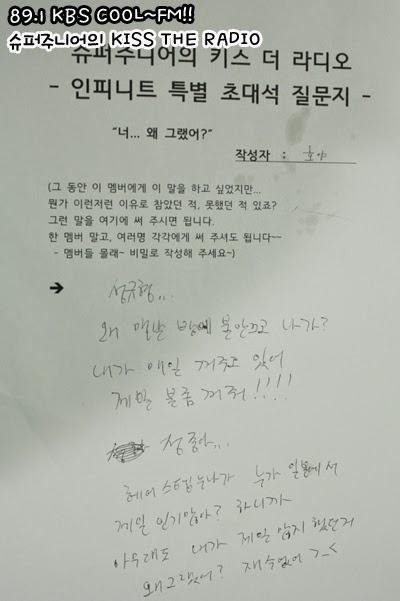 89.1 KBS COOL~FM!!
슈퍼주니어의 KISS THE RADIO
슈퍼주니어의 키스 더 라디오
- 인피니트 특별 초대석 질문지 -
"너... 왜 그랬어?"
작성자 : 호야
(그 동안 이 멤버에게 이 말을 하고 싶었지만...
뭔가 이런저런 이유로 참았던 적, 못했던 적 있죠?
그런 말을 여기에 써 주시면 됩니다.
한 멤버 말고, 여러명 각각에게 써 주셔도 됩니다~~
- 멤버들 몰래~ 비밀로 작성해 주세요~)
→ 성규형...
왜 맨날 방에 불안끄고 나가?
내가 매일 꺼주고 있어
제발 불좀 꺼줘!!!!
성종아...
헤어 스탭 누나가 누가 일본에서
제일 인기많아? 하니까
아무래도 내가 제일 많지 했던거
왜그랬어? 재수없어 >_<